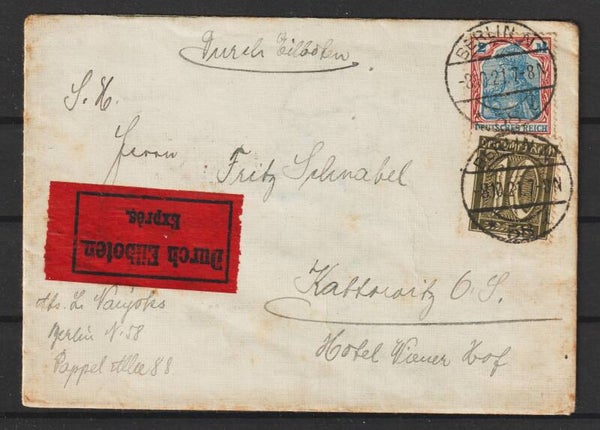 Durch Eilboten
S. H.
Herrn
Fritz Schnabel
Kattowitz O. S.
Hotel Wiener Hof
Durch Eilboten
Exprès.
Abs. L.
Berlin N. 58
Pappel Allee 88
BERLIN N
-8.10.21.7-8N
2 M
DEUTSCHES REICH
BERLIN N
8.10.21.7-8N